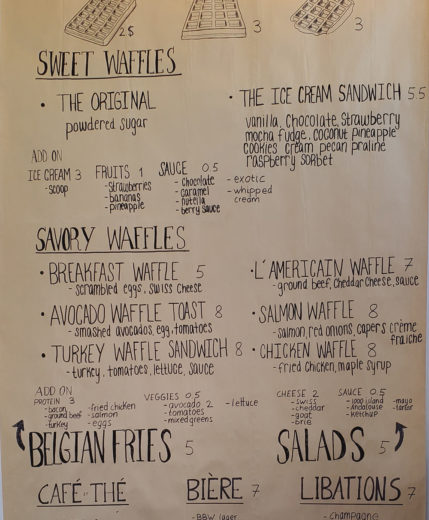 2.5
3
3
SWEET WAFFLES
• THE ORIGINAL
powdered sugar
• THE ICE CREAM SANDWICH 5.5
vanilla, chocolate, strawberry
mocha fudge, coconut pineapple
cookies cream pecan praline
raspberry sorbet
ADD ON
ICE CREAM 3
-scoop
FRUITS 1
-strawberries
-bananas
-pineapple
SAUCE 0.5
-chocolate
-caramel
-nutella
-berry sauce
-exotic
-whipped
cream
SAVORY WAFFLES
• BREAKFAST WAFFLE 5
-scrambled eggs, swiss cheese
• AVOCADO WAFFLE TOAST 8
-smashed avocados, egg, tomatoes
• TURKEY WAFFLE SANDWICH 8
-turkey, tomatoes, lettuce, sauce
• L'AMERICAIN WAFFLE 7
-ground beef, cheddar cheese, sauce
• SALMON WAFFLE 8
-salmon, red onions, capers crème
fraiche
• CHICKEN WAFFLE 8
-fried chicken, maple syrup
ADD ON
PROTEIN 3
-bacon
-ground beef
-turkey
-fried chicken
-salmon
-eggs
VEGGIES 0.5
-avocado 2
-tomatoes
-mixed greens
-lettuce
CHEESE 2
-swiss
-cheddar
-goat
-brie
SAUCE 0.5
-1000 island
-andalouse
-ketchup
-mayo
-tartar
BELGIAN FRIES 5
SALADS 5
CAFÉ-THÉ
BIÈRE 7
-BBW lager
LIBATIONS 7
-champagne